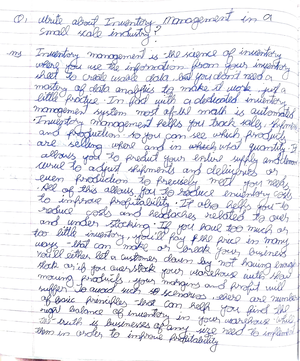 Q. Write about Inventory Management in a
Small scale industry?
Ans Inventory management is the science of inventory
where you use the information from your inventory
sheet to create usable data. but you don't need a
mastery of data analytics to make it work. just a
little practise. In fact with a dedicated inventory
management system most of the math is automated
Inventory management helps you track sales, shipments
and production. so you can see which products
are selling where and in which what quantity. It
allows you to predict your entire supply and
to adjust shipments and deliveries or
even production to precisely meet your needs
All of this allows you to reduce inventory costs
to improve profitability. It also helps you
reduce costs and headaches related to over
and under stocking. If you have too much or
too little inventory, you'll pay the price in many
ways - that can make or break your business
You'll either let a customer down by not having enough
stock or if you over stock your warehouse with slow
moving products your margins and profit will
suffer. To avoid such scenarios there are number
of basic principles that can help you find the
right balance of inventory in your warehouse
truth is businesses of any size need to implement
them in order to improve profitability